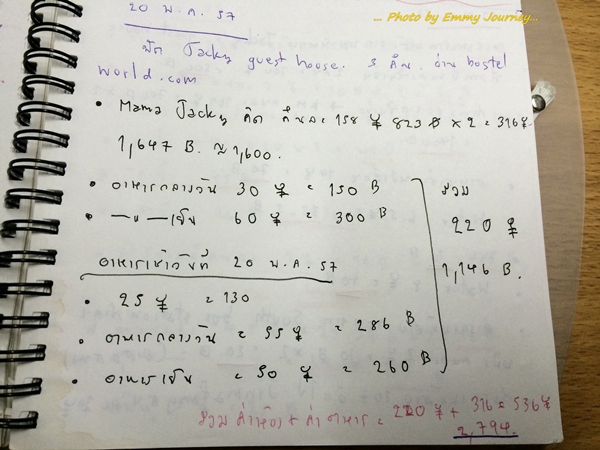 ... Photo by Emmy Journey...
20 พ.ค. 57
พัก Jacky guest house. 3 คืน. ผ่าน hostel
world.com
• Mama Jacky คิด คืนละ 158 ¥ 823 ฿ x 2 = 316 ¥
1,647 B. ≈ 1,600.
• อาหารกลางวัน 30 ¥ = 150 B
• —"—เย็น 60 ¥ = 300 B
รวม
220 ¥
1,146 B.
อาหารเช้าวันที่ 20 พ.ค. 57
• 25 ¥ = 130
• อาหารกลางวัน = 55 ¥ = 286 B
• อาหารเย็น = 50 ¥ = 260 B
รวม ค่าห้อง + ค่าอาหาร = 220 ¥ + 316 = 536 ¥
2,794.